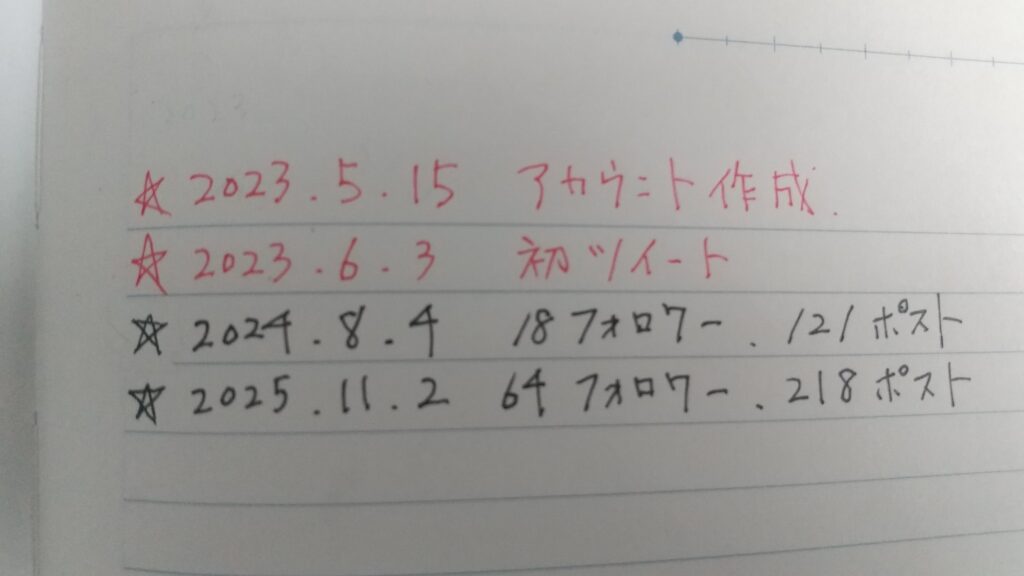 ☆ 2023.5.15 アカウント作成.
☆ 2023.6.3 初ツイート
☆ 2024.8.4 18フォロワー.121ポスト
☆ 2025.11.2 64フォロワー.218ポスト